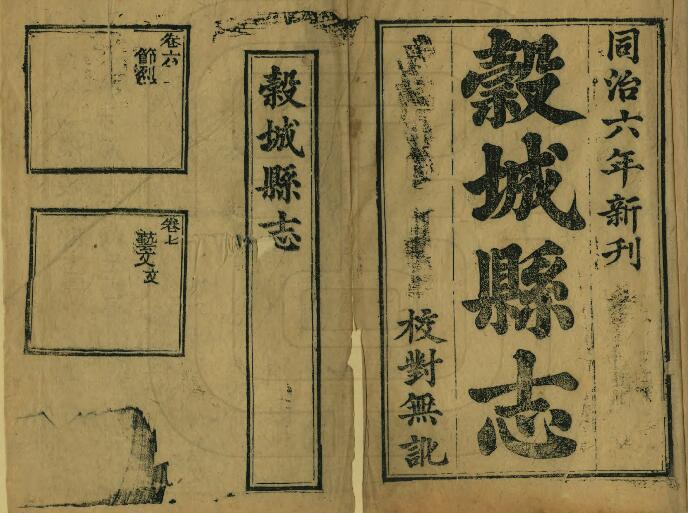 同治六年新刊
穀城縣志
校對無訛
穀城縣志
卷六
節烈
卷七
藝文